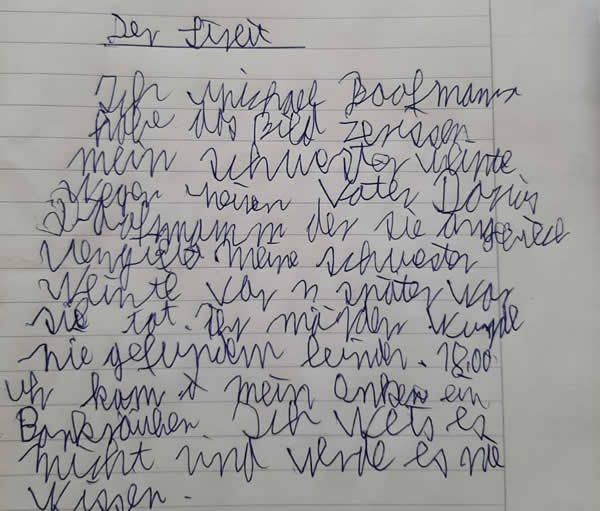 Der Streit
Ich Michael Boofmann
habe das Bild zerissen
mein schwester weinte
wegen meinen Vater Darius
Boofmann der sie
meine schwester
weinte vor n später war
sie tot. Der mörder wurde
nie gefunden leider. 18.00
uh kam mein ein
Bankräuber. Ich weis es
nicht und werde es nie
wissen.